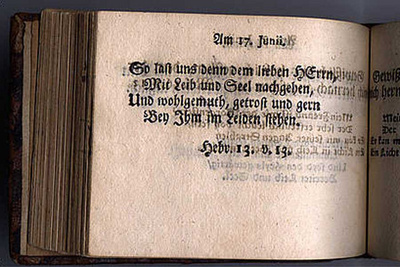 Am 17. Junii.
So last uns denn dem lieben HErrn,
Mit Leib und Seel nachgehen,
Und wohlgemuth, getrost und gern
Bey Ihm im Leiden stehen.
Hebr. 13. v. 13.
Gewiß